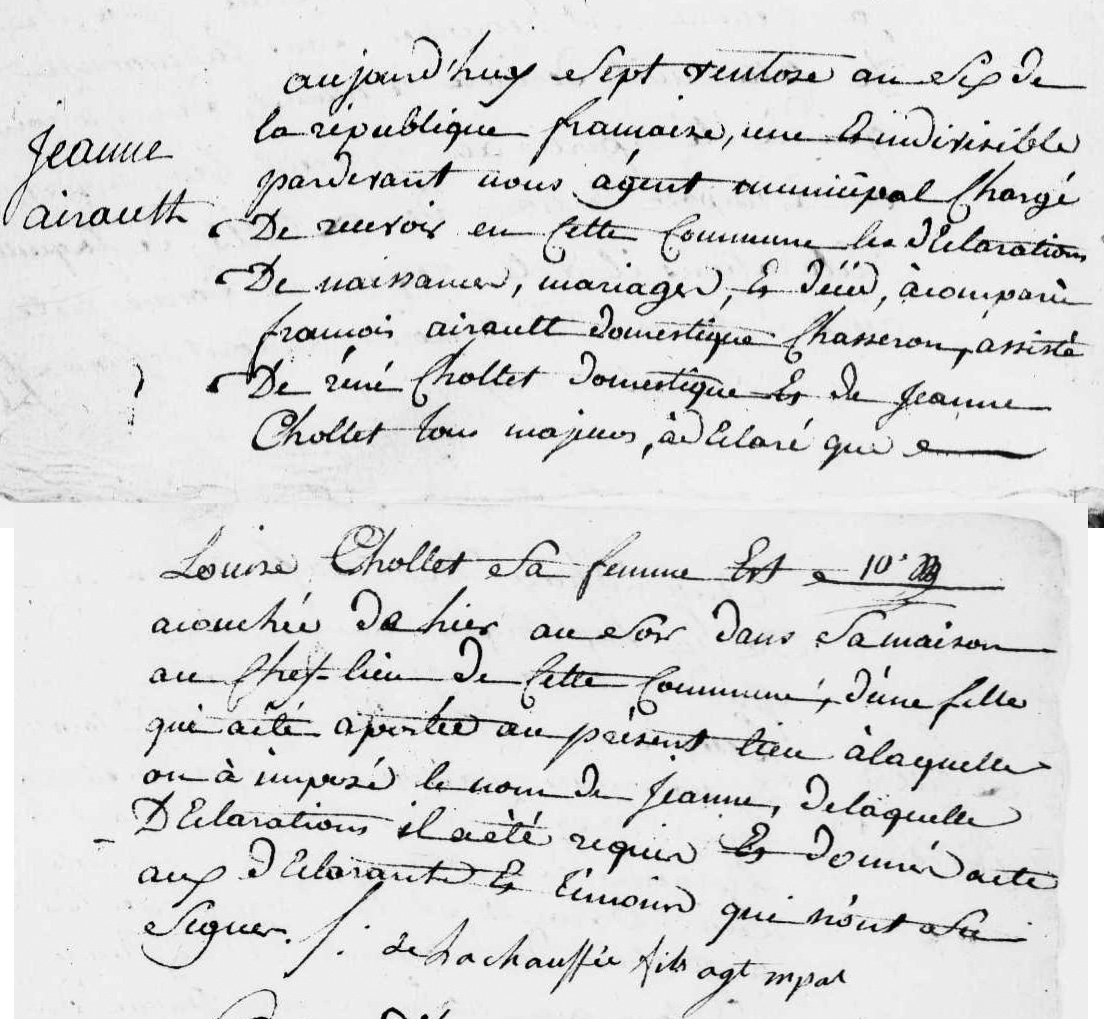 Jeanne
airault
aujourd'huy sept ventose an six de
la république francaise, une et indivisible
pardevant nous agent municipal chargé
De recevoir en cette commune les déclarations
De naissances, mariages, et décés, à comparu
francois airault domestique Chasseron, assisté
De réné Chollet domestique et de jeanne
Chollet tous majeurs, à déclaré que
Louise Chollet sa femme Est
acouchée de hier au soir dans sa maison
au chef-lieu de cette commune, d'une fille
qui a été aportée au présent lieu à laquelle
on à imposé le nom de jeanne, de laquelle
Déclarations il a été requis et donnés acte
aux déclarants et témoins qui n'ont sçu
signer. f. de Lachauffée fils agt mpal